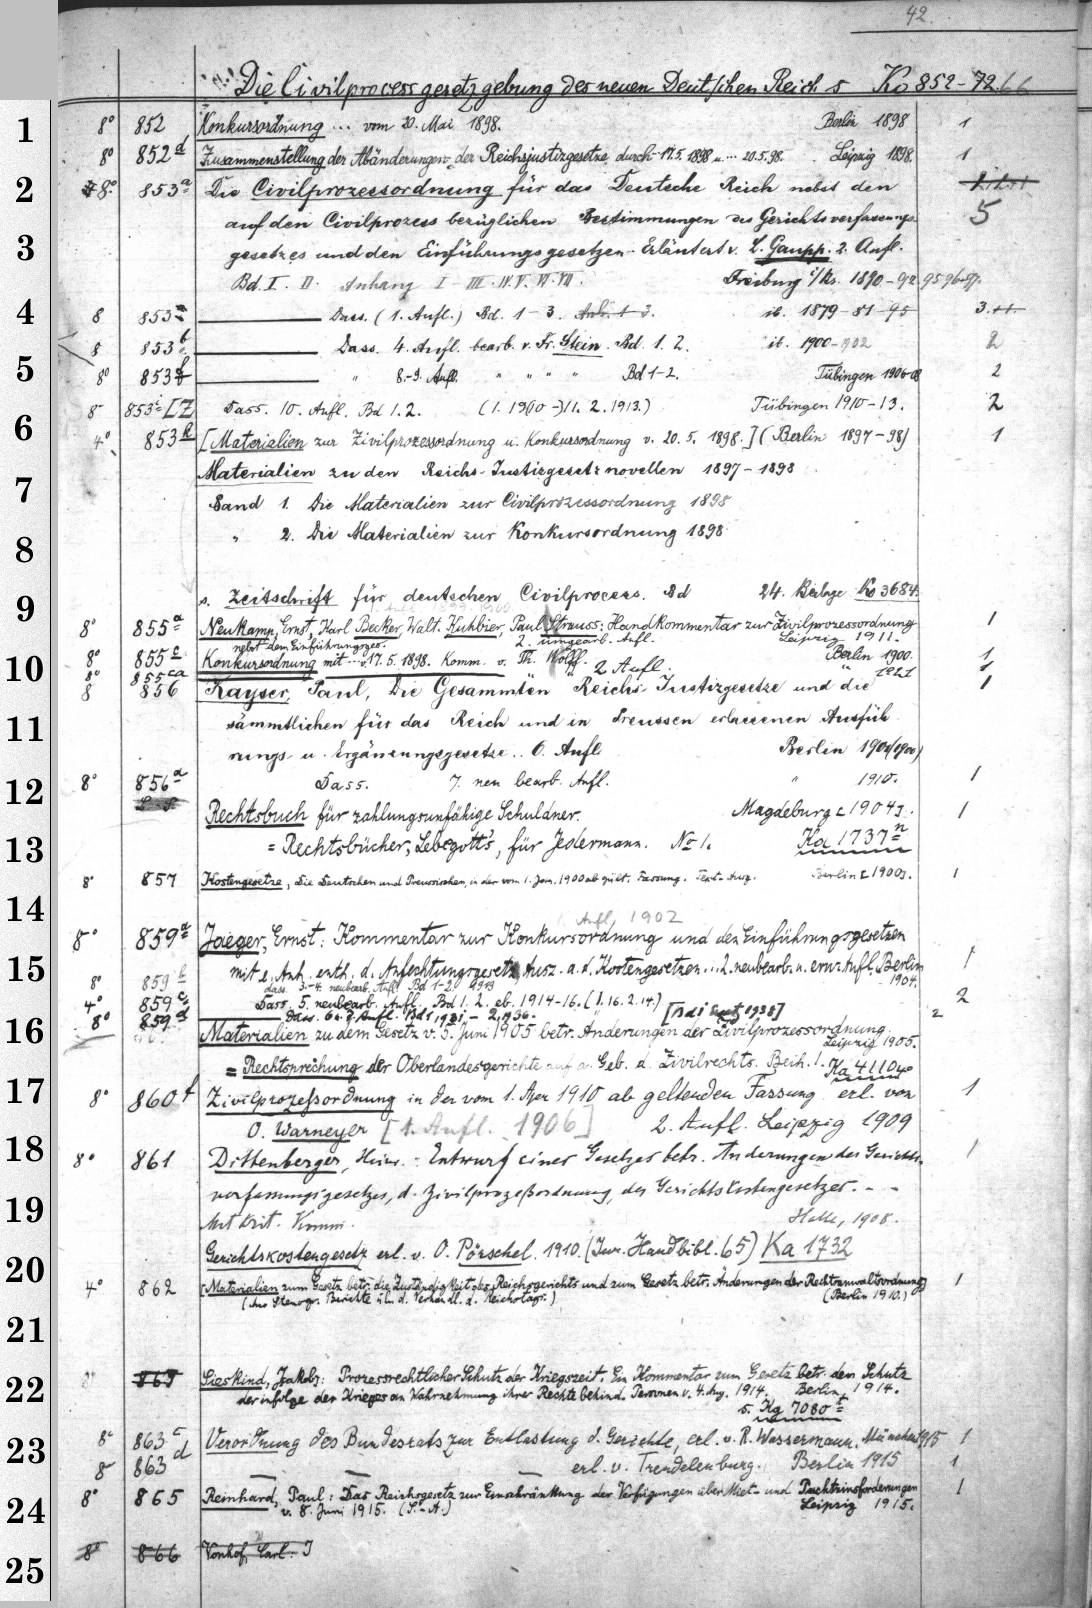 42.
Die Civilprocessgesetzgebung des neuen Deutschen Reichs Ko 852-72.66
1 8° 852 Konkursordnung ... vom 20. Mai 1898. Berlin 1898 1
8° 852d Zusammenstellung der Abänderungen der Reichsjustizgesetze durch 17.5.1898 u. ... 20.5.98. Leipzig 1898. 1
2 8° 853a Die Civilprozessordnung für das Deutsche Reich nebst den
auf den Civilprozess bezüglichen Bestimmungen des Gerichtsverfassungs- 5
3 gesetzes und den Einführungsgesetzen. Erläutert v. L. Gaupp. 2. Aufl.
Bd. I. II. Anhang I-III.IV.V.VI.VII. Freiburg i/Br. 1890-92. 95 96
4 8 853 Dass. (1. Aufl.) Bd. 1-3. ib. 1879-81-95 3.
8 853b Dass. 4. Aufl. bearb. v. Fr. Stein. Bd. 1. 2. ib. 1900-1902 2
5 8° 853f " 8.-9. Aufl. " " " " Bd 1-2. Tübingen 1906-08 2
8° 853i [Z Dass. 10. Aufl. Bd 1.2. (1. 1910-11. 2. 1913.) Tübingen 1910-13. 2
6 4° 853k [Materialien zur Zivilprozessordnung u. Konkursordnung v. 20.5. 1898.] (Berlin 1897-98) 1
Materialien zu den Reichs-Justizgesetznovellen 1897-1898
7 Band 1. Die Materialien zur Civilprozessordnung 1898
8 " 2. Die Materialien zur Konkursordnung 1898
9 s. Zeitschrift für deutschen Civilprocess. Bd 24. Beilage Ko 3684.
8° 855a Neukamp, Ernst, Karl Becker, Walt. Kuhbier, Paul Strauss: Handkommentar zur Zivilprozessordnung 1
nebst dem Einführungsges. 2. umgearb. Aufl. Leipzig 1911.
10 8° 855c Konkursordnung mit v. 17.5.1898. Komm. v. Th. Wolff. Berlin 1900. 1
8° 855ca " 2 Aufl. " 1921 1
8 856 Kayser, Paul, Die Gesammten Reichs Justizgesetze und die 1
11 sämmtlichen für das Reich und in Preussen erlassenen Ausfüh
rungs- u. Ergänzungsgesetze.. 6. Aufl. Berlin 1901(1900)
12 8° 856a Dass. 7. neu bearb. Aufl. " 1910. 1
Rechtsbuch für zahlungsunfähige Schuldner. Magdeburg [1904]. 1
13 = Rechtsbücher, Lebegott's, für Jedermann. No 1. Ka 1737n
8° 857 Kostengesetze, Die Deutschen und Preussischen, in der vom 1. Jan. 1900 ab gült. Fassung. Text-Ausg. Berlin [1900]. 1
14 1. Aufl. 1902
8° 859a Jaeger, Ernst: Kommentar zur Konkursordnung und den Einführungsgesetzen
15 mit e. Anh. enth. d. Anfechtungsgesetz, Ausz. a. d. Kostengesetzen... 2. neubearb. u. erw. Aufl. Berlin 1904. 1
8° 859b dass. 3.-4. neubearb. Aufl. Bd 1-2 1913
4° 859c Dass. 5. neubearb. Aufl. Bd 1. 2. eb. 1914-16. (1. 16. 2. 14.) 2
8° 859d Dass. 6.u.7. Aufl. Bd 1 1931 - 2, 1936. 2
16 Materialien zu dem Gesetz v. 5. Juni 1905 betr. Änderungen der Zivilprozessordnung. Leipzig 1905.
= Rechtsprechung der Oberlandesgerichte auf d. Geb. d. Zivilrechts. Beih. 1. Ka 4110
17 8° 860f Zivilprozeßordnung in der vom 1. Apr 1910 ab geltenden Fassung erl. von 1
O. Warneyer [1. Aufl. 1906] 2. Aufl. Leipzig 1909
18 8° 861 Dittenberger, Heinr.: Entwurf eines Gesetzes betr. Änderungen des Gerichts- 1
verfassungsgesetzes, d. Zivilprozeßordnung, des Gerichtskostengesetzes. - -
19 Mit krit. Komm. Halle, 1908.
Gerichtskostengesetz erl. v. O. Pörschel. 1910. (Jur. Handbibl. 65) Ka 1732
20 4° 862 [Materialien zum Gesetz betr. die Zuständigkeit des Reichsgerichts und zum Gesetz betr. Änderungen der Rechtsanwaltsordnung] 1
(Aus Stenogr. Berichte üb. d. Verhandl. d. Reichstags.) (Berlin 1910.)
21
22 863 Sieskind, Jakob: Prozessrechtlicher Schutz der Kriegszeit. Ein Kommentar zum Gesetz betr. den Schutz
der infolge des Krieges an Wahrnehmung ihrer Rechte behind. Personen v. 4. Aug. 1914. Berlin, 1914.
s. Kg 7080
23 8° 863c Verordnung des Bundesrats zur Entlastung d. Gerichte, erl. v. R. Wassermann. München 1915 1
8° 863d erl. v. Trendelenburg. Berlin 1915 1
24 8° 865 Reinhard, Paul: Das Reichsgesetz zur Einschränkung der Verfügungen über Miet- und Pachtzinsforderungen 1
v. 8. Juni 1915. (S.-A.) Leipzig 1915.
25 8° 866 Vonhof, Carl.